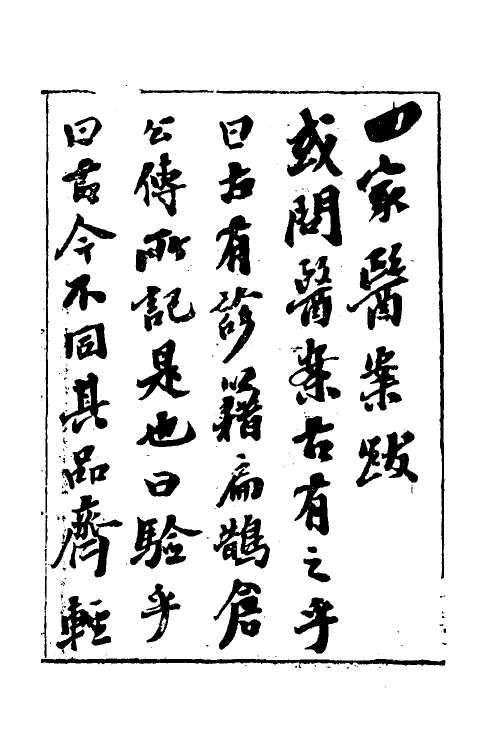 四家醫案跋
或問醫案古有之乎
曰古有診籍扁鵲倉
公傳所記是也曰驗乎
曰古今不同其品齊輕